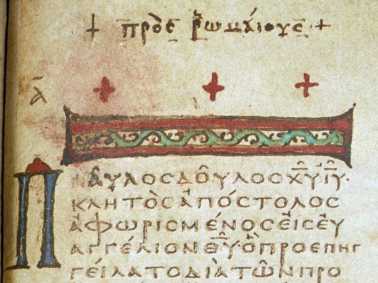 + πρὸς ῥωμαίους +
ᾱ
Παῦλος δοῦλος χ̅υ̅ ι̅υ̅
κλητὸς ἀπόστολος
ἀφωρισμένος εἰς εὐ
αγγέλιον θ̅υ̅ ὃ προεπηγ
γείλατο διὰ τῶν προ